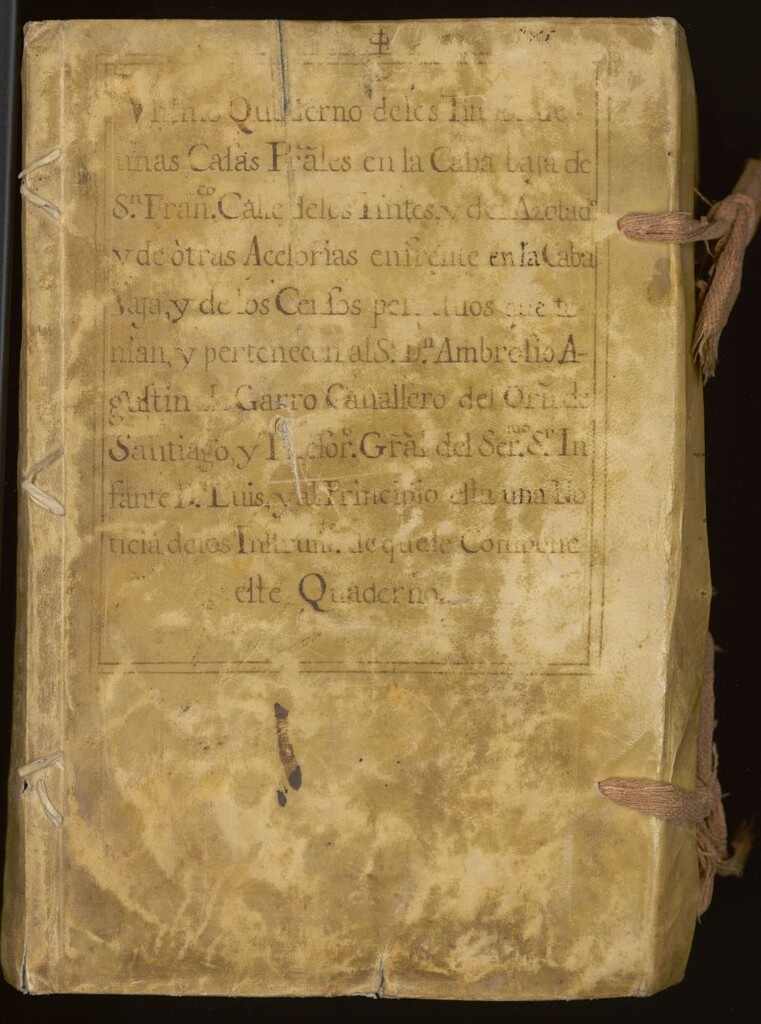 Quaderno de los
unas Casas Prales en la Caba baja de
Sn. Franco. Calle de los Tintes, y del Azotado
y de òtras Accesorias enfrente en la Caba
Vaja, y de los Censos perpetuos que te-
nian, y pertenecen al Sr. Dn. Ambrosio A-
gustin de Garro Cauallero del Orn. de
Santiago, y Thesor. Gral del Sermo. Sr. In
fante Dn. Luis, y al Principio esta una No
ticia de los Instrumtos. de que se Compone
este Quaderno.